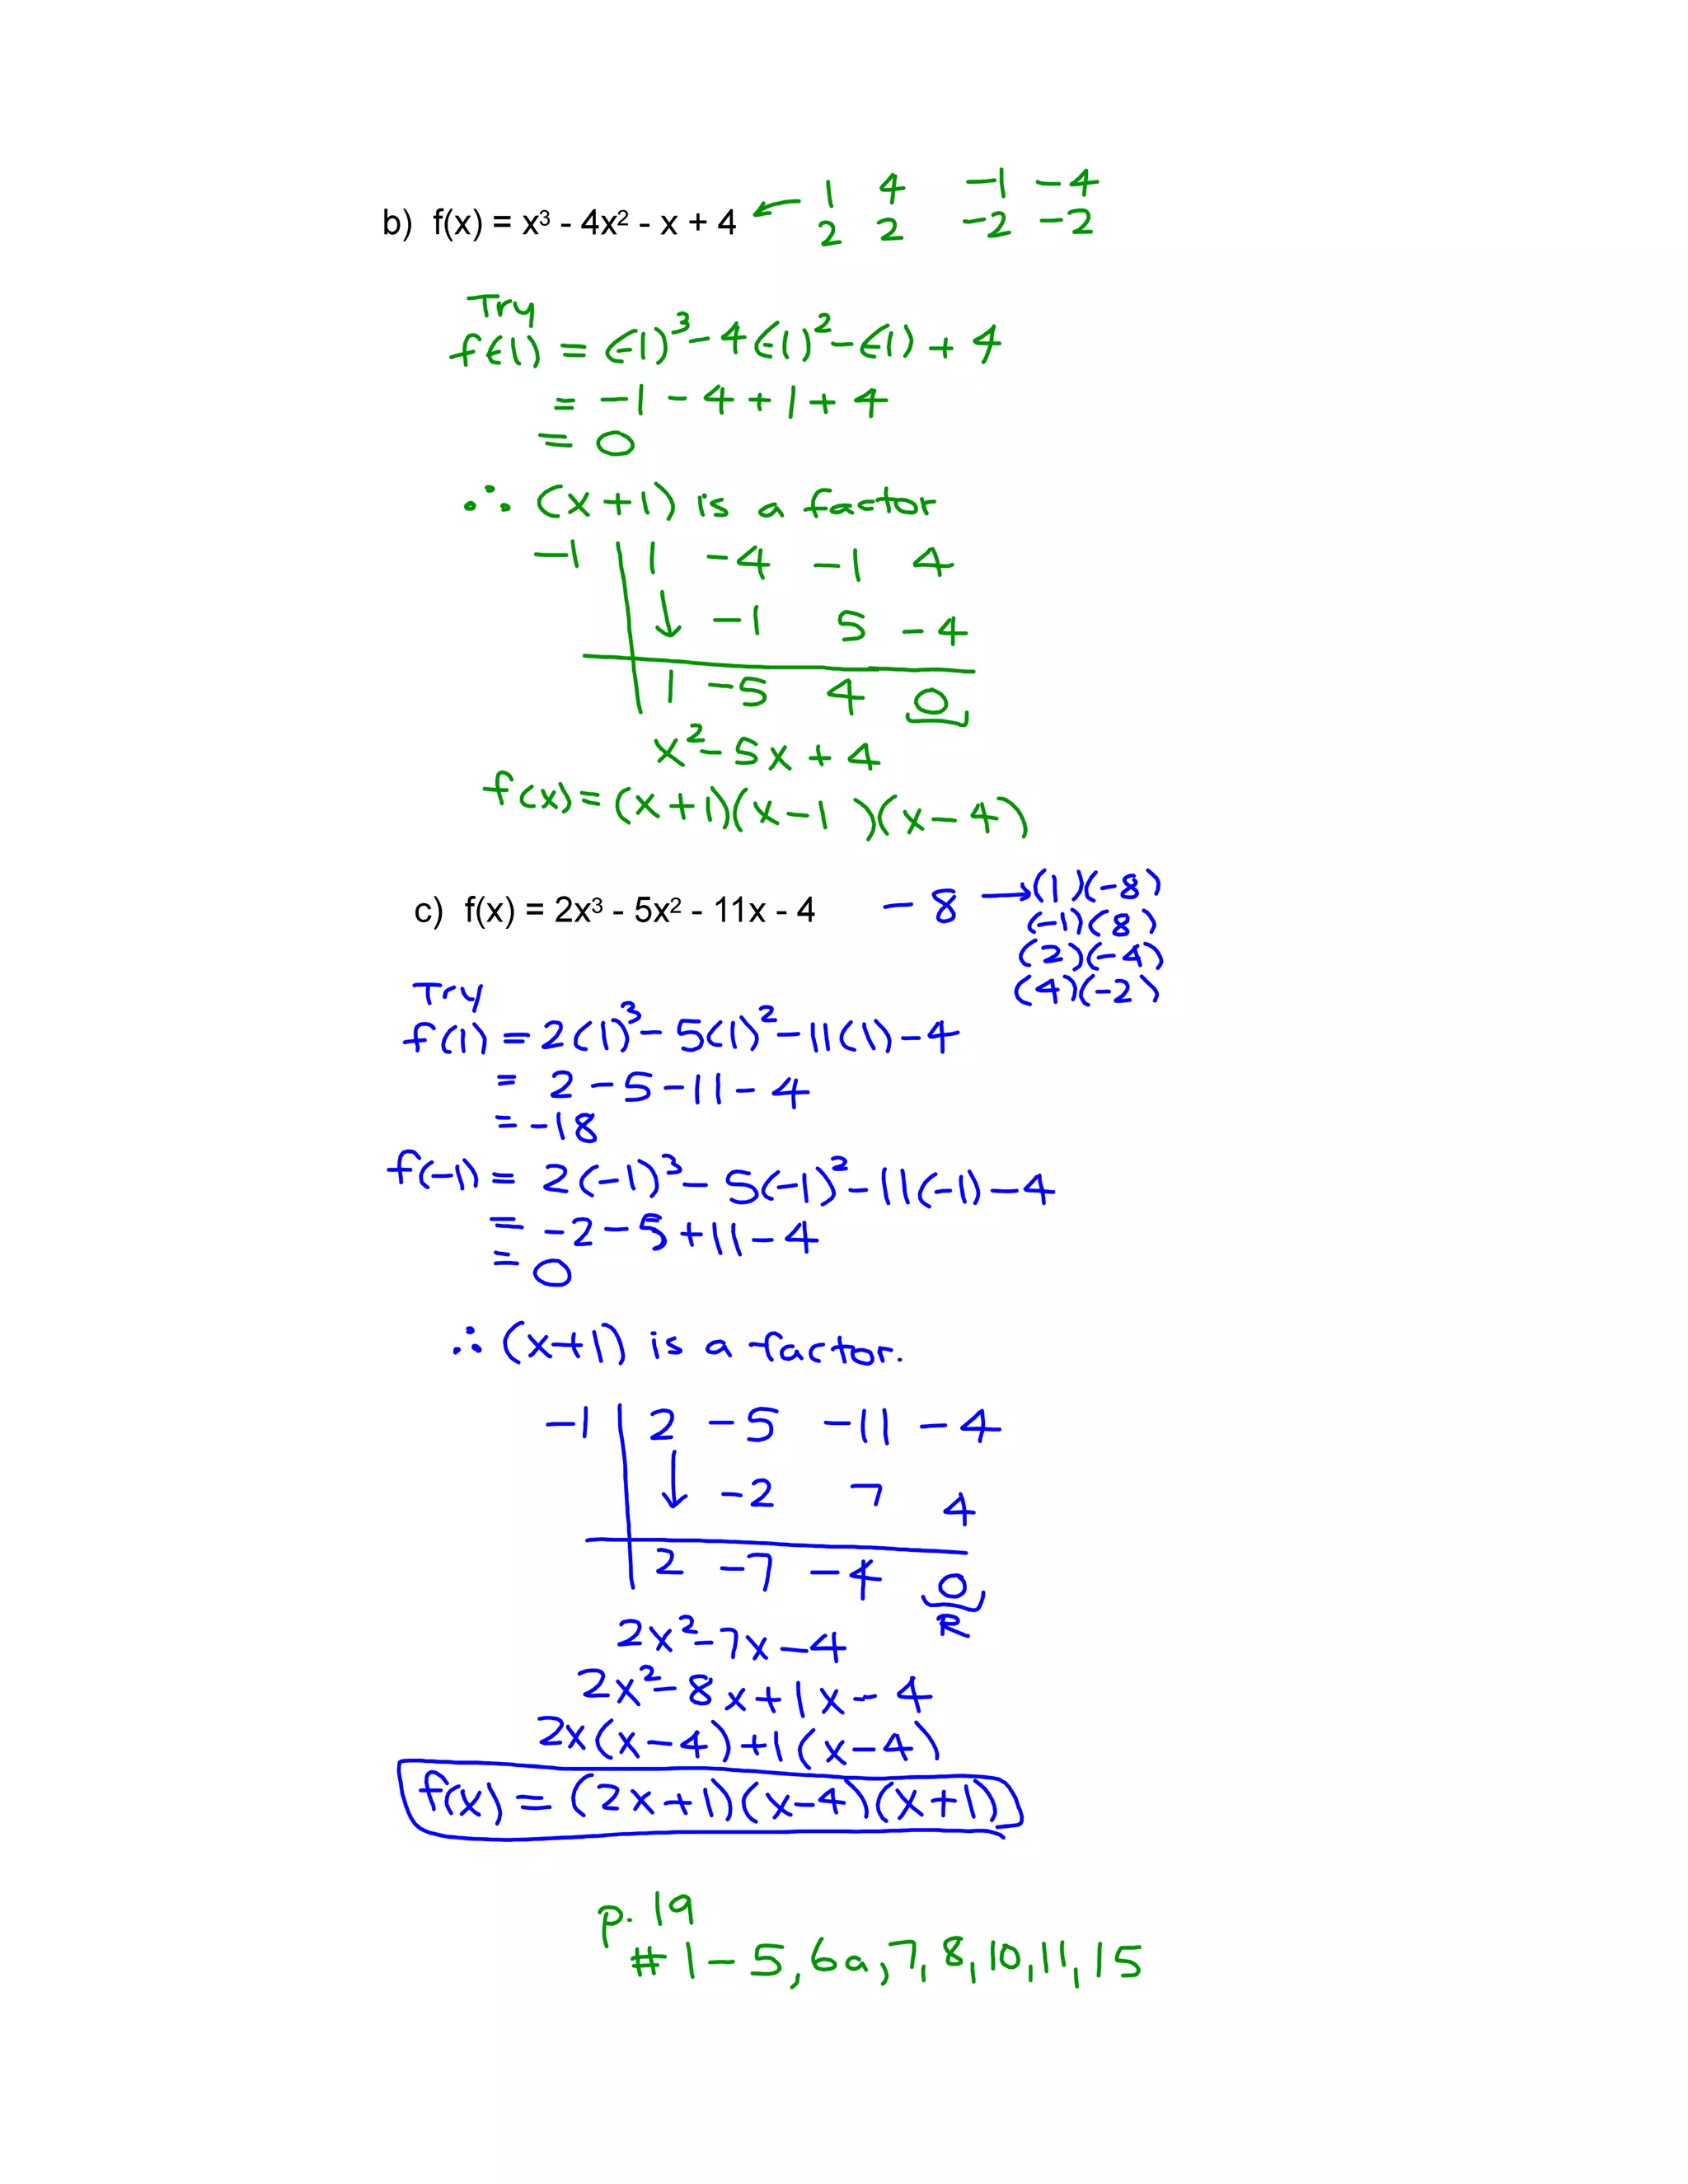 b) f(x) = x³ - 4x² - x + 4 ← 1 4 -1 -4
2 2 -2 -2
Try
f(-1) = (-1)³ - 4(-1)² - (-1) + 4
= -1 - 4 + 1 + 4
= 0
∴ (x+1) is a factor
-1 | 1 -4 -1 4
↓ -1 5 -4
1 -5 4 0
x² - 5x + 4
f(x) = (x+1)(x-1)(x-4)
c) f(x) = 2x³ - 5x² - 11x - 4 -8 → (1)(-8)
(-1)(8)
(2)(-4)
(4)(-2)
Try
f(1) = 2(1)³ - 5(1)² - 11(1) - 4
= 2 - 5 - 11 - 4
= -18
f(-1) = 2(-1)³ - 5(-1)² - 11(-1) - 4
= -2 - 5 + 11 - 4
= 0
∴ (x+1) is a factor.
-1 | 2 -5 -11 -4
↓ -2 7 4
2 -7 -4 0
R
2x² - 7x - 4
2x² - 8x + 1x - 4
2x(x-4) + 1(x-4)
f(x) = (2x+1)(x-4)(x+1)
p. 19
# 1-5, 6a, 7, 8, 10, 11, 15